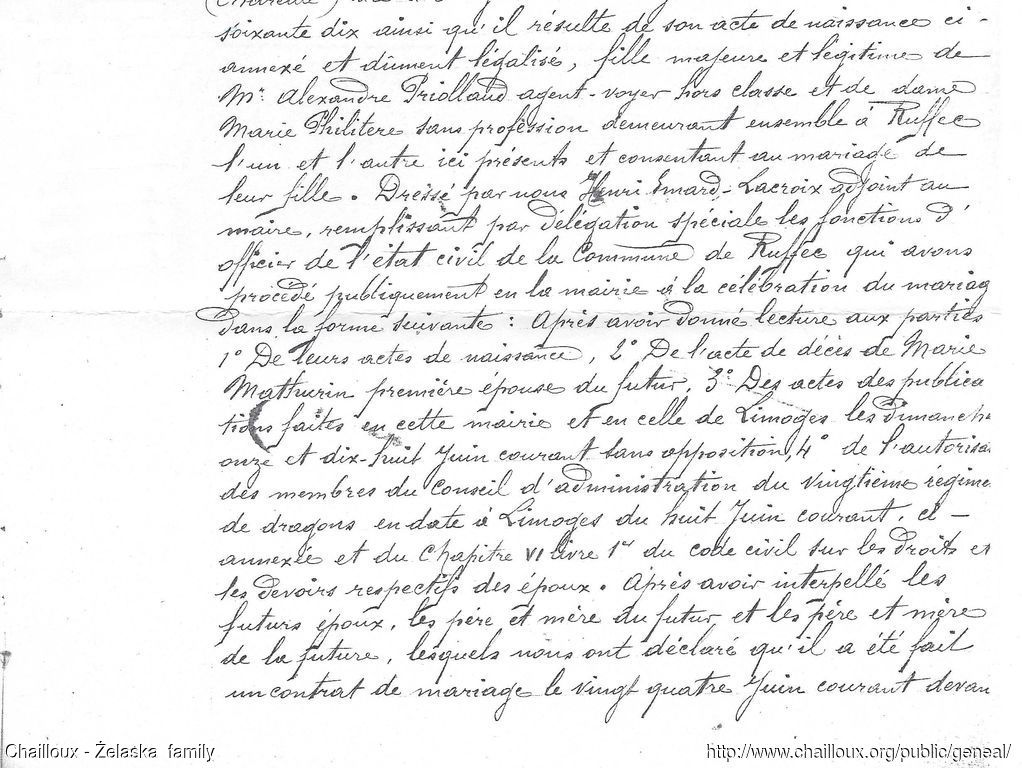 (Charente)
soixante dix ainsi qu'il résulte de son acte de naissance ci-
annexé et dûment légalisé, fille majeure et légitime de
Mr. Alexandre Priolland agent-voyer hors classe et de dame
Marie Philitere sans profession demeurant ensemble à Ruffec
l'un et l'autre ici présents et consentant au mariage de
leur fille. Dressé par nous Henri Emard-Lacroix adjoint au
maire, remplissant par délégation spéciale les fonctions d'
officier de l'état civil de la Commune de Ruffec qui avons
procédé publiquement en la mairie à la célébration du mariag
dans la forme suivante : Après avoir donné lecture aux parties
1° De leurs actes de naissance, 2° De l'acte de décès de Marie
Mathurin première épouse du futur, 3° Des actes des publica
tions faites en cette mairie et en celle de Limoges les Dimanche
onze et dix-huit Juin courant sans opposition, 4° de l'autorisa
des membres du Conseil d'administration du vingtième régime
de dragons en date à Limoges du huit Juin courant, ci-
annexée et du Chapitre VI livre 1er du code civil sur les droits et
les devoirs respectifs des époux. Après avoir interpellé les
futurs époux, les père et mère du futur et les père et mère
de la future, lesquels nous ont déclaré qu'il a été fait
un contrat de mariage le vingt quatre Juin courant devan
Chailloux - Želaska family
http://www.chailloux.org/public/geneal/